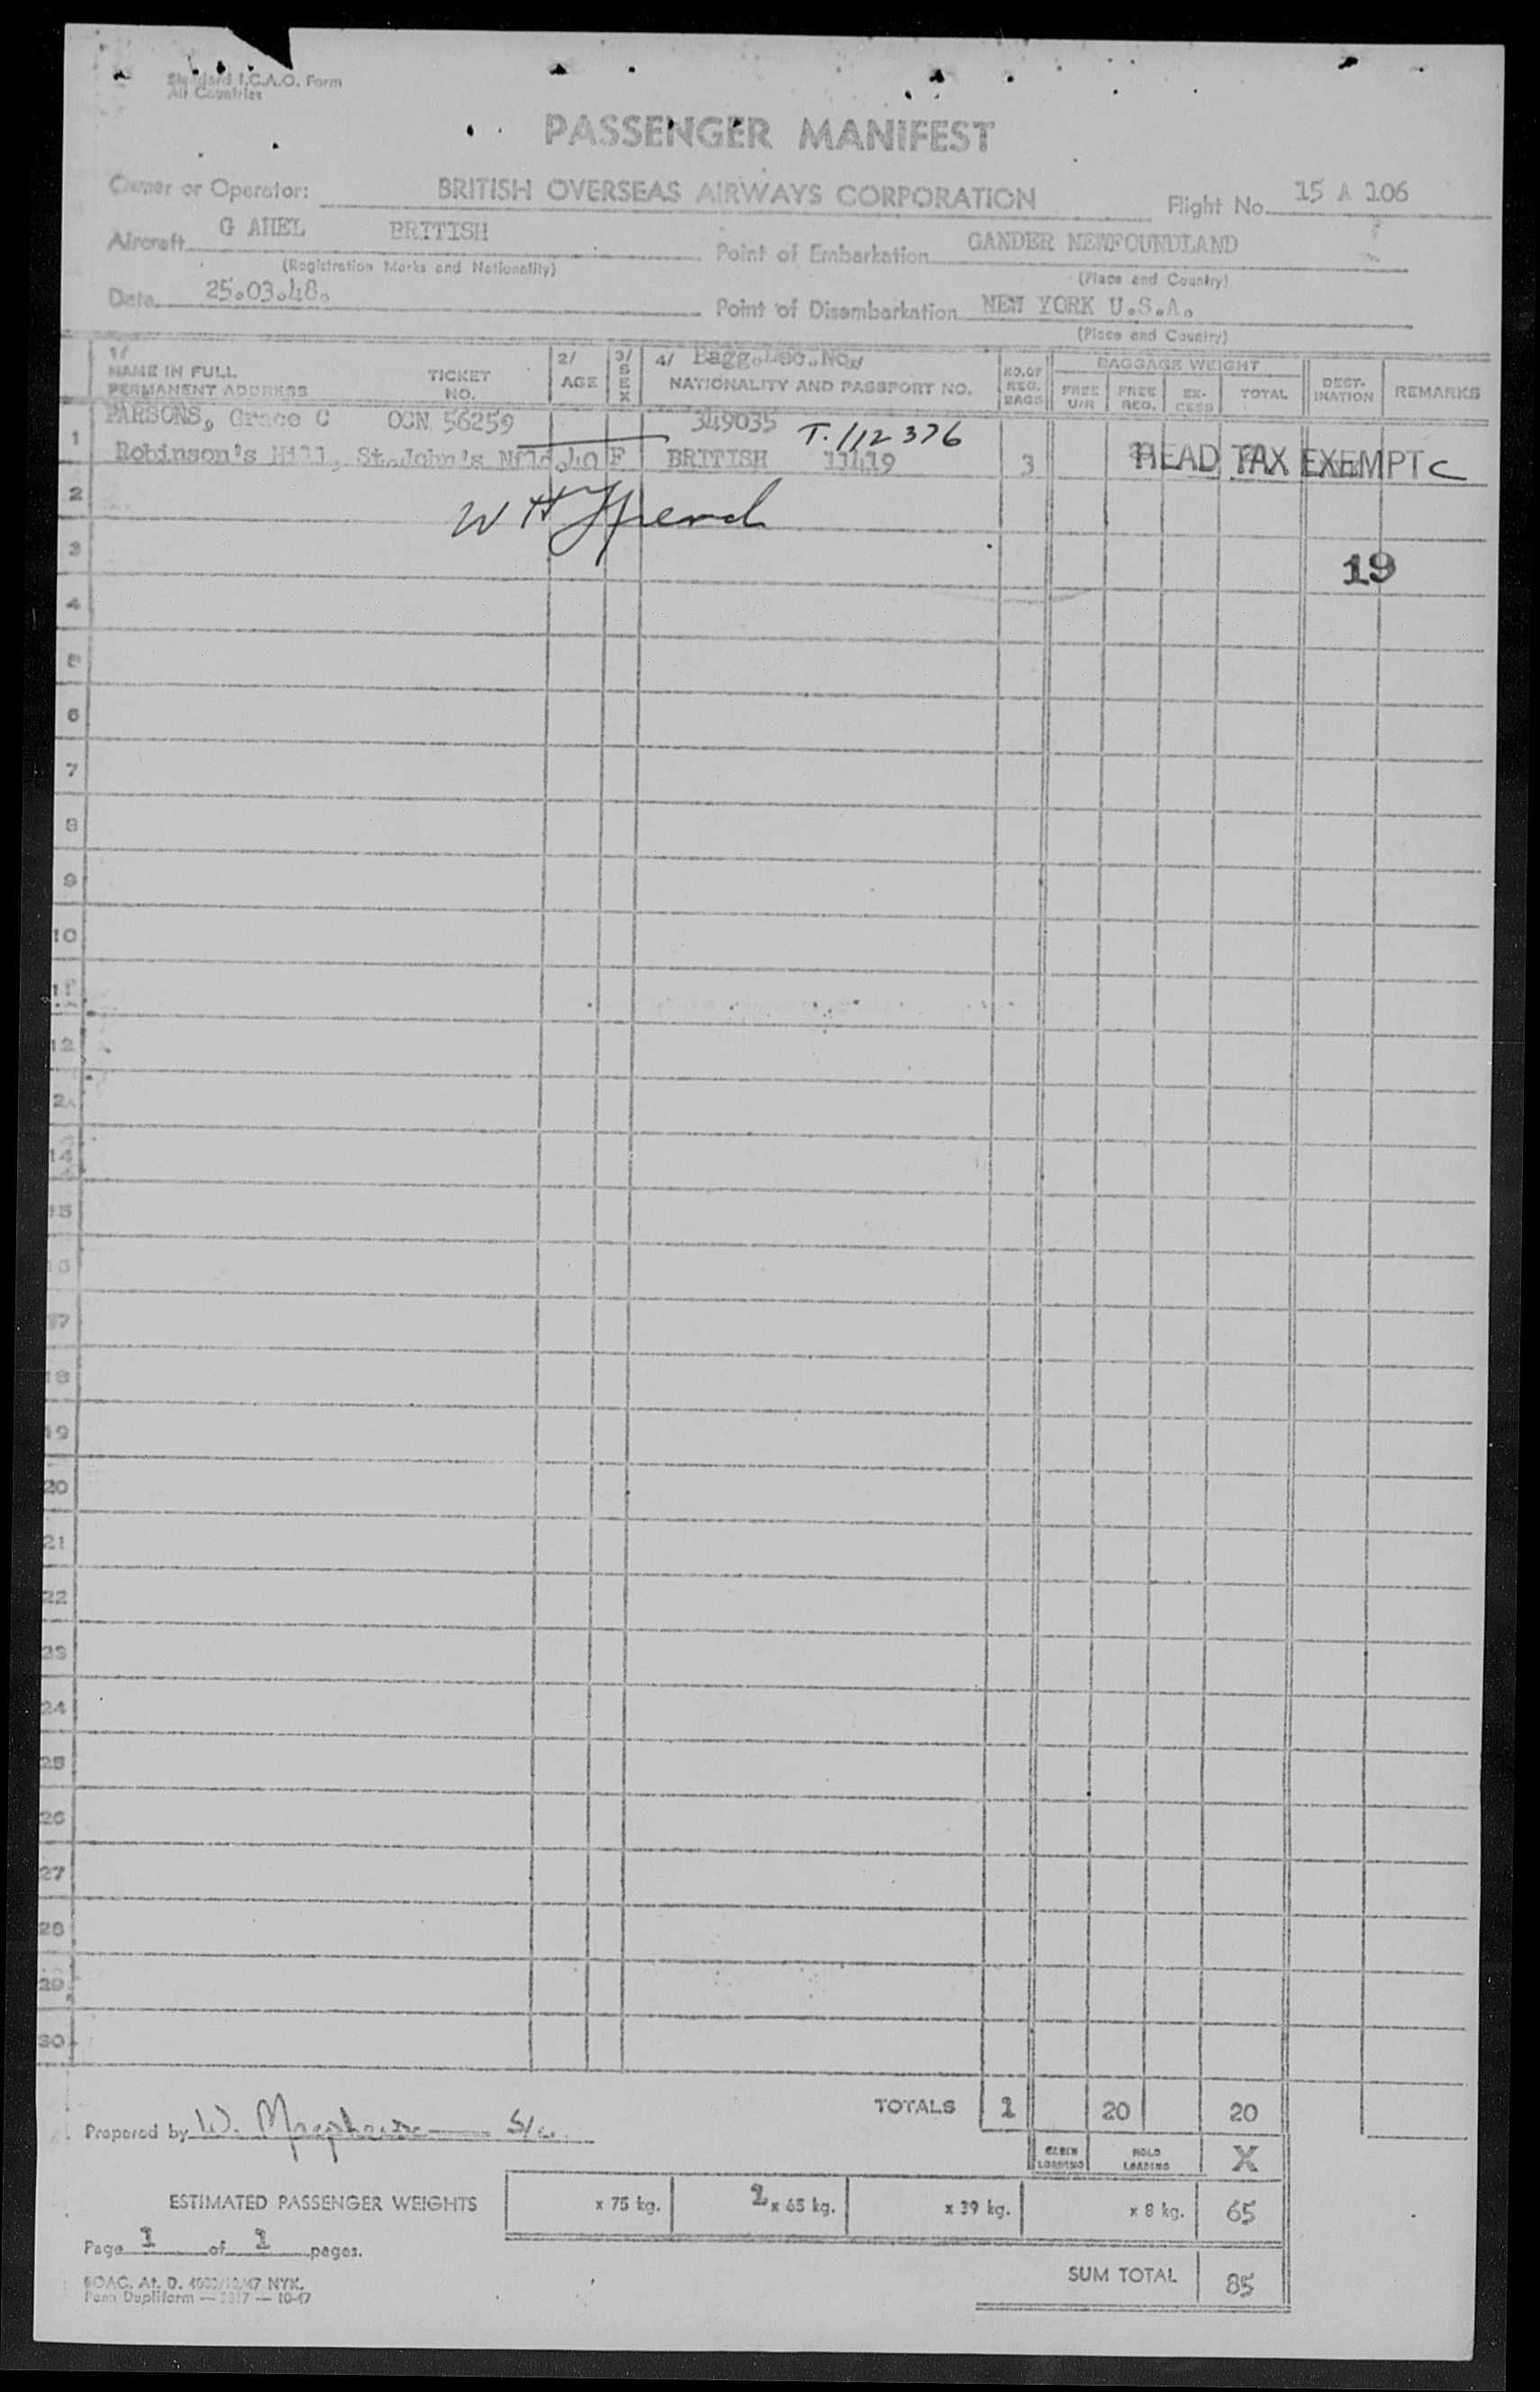 Standard I.C.A.O. Form
All Countries
PASSENGER MANIFEST
Owner or Operator: BRITISH OVERSEAS AIRWAYS CORPORATION Flight No. 15 A 106
Aircraft G AHEL BRITISH Point of Embarkation GANDER NEWFOUNDLAND
(Registration Marks and Nationality) (Place and Country)
Date 25.03.48. Point of Disembarkation NEW YORK U.S.A.
(Place and Country)
1/ NAME IN FULL PERMANENT ADDRESS TICKET NO. 2/ AGE 3/ SEX 4/ Bagg. Dec. No. NATIONALITY AND PASSPORT NO. NO. OF REG. BAGS BAGGAGE WEIGHT FREE U/H FREE REG. EX-CESS TOTAL DEST-INATION REMARKS
PARSONS, Grace C OCN 56259 349035 T. 112376
1 Robinson's Hill, St. John's Nfld. 40 F BRITISH 11419 3 HEAD TAX EXEMPT C
2 W H
3 19
4
5
6
7
8
9
10
11
12
2A
14
15
16
17
18
19
20
21
22
23
24
25
26
27
28
29
30
TOTALS 1 20 20
Prepared by W.
CABIN LOADING HOLD LOADING X
ESTIMATED PASSENGER WEIGHTS x 75 kg. 1 x 65 kg. x 39 kg. x 8 kg. 65
Page 1 of 1 pages.
SUM TOTAL 85
BOAC. At. D. NYK.
Penn Dupliform — 10-47